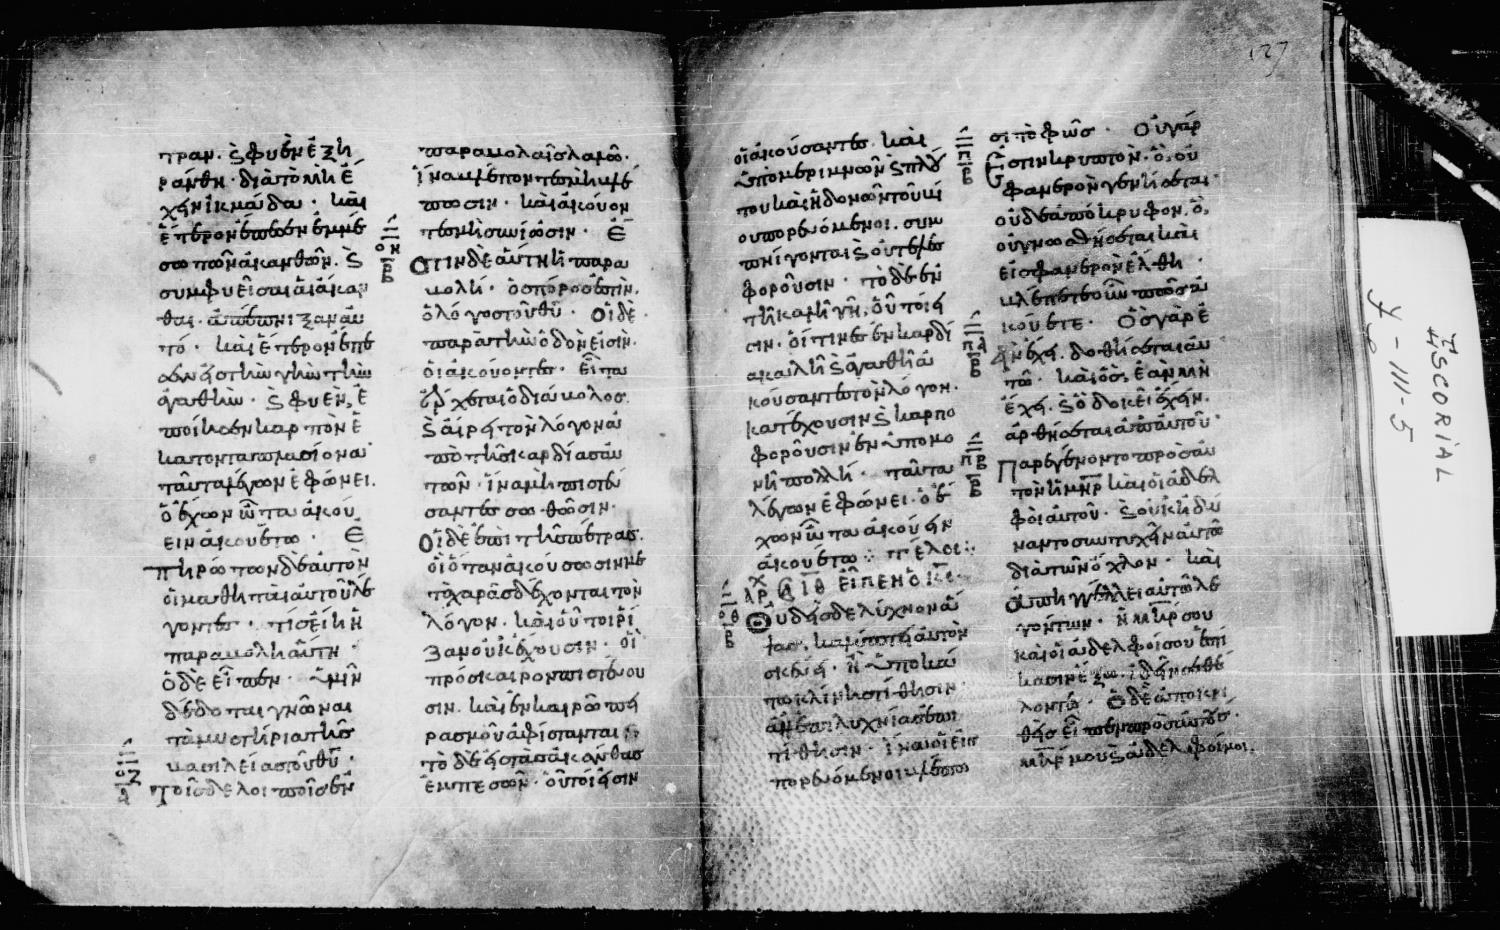 τραν. ϗ φυὲν ἐξη
ράνθη· διὰ τὸ μὴ ἔ
χειν ἰκμάδα· καὶ
ἕτερον ἔπεσεν ἐν μέ
σω τῶν ἀκανθῶν. ϗ
συμφυεῖσαι αἱ ἄκαν
θαι· ἀπέπνιξαν αὐ
τό· καὶ ἕτερον ἔπε
σεν εἰς τὴν γῆν τὴν
ἀγαθὴν· ϗ φυὲν, ἐ
ποίησεν καρπὸν ἑ
κατονταπλασίονα
ταῦτα λέγων ἐφώνει.
ὁ ἔχων ὦτα ἀκού
ειν ἀκουέτω· Ἐ
πηρώτων δὲ αὐτὸν
οἱ μαθηταὶ αὐτοῦ λέ
γοντες· τίς εἴη ἡ
παραβολὴ αὕτη·
ὁ δὲ εἶπεν· ὑμῖν
δέδοται γνῶναι
τὰ μυστήρια τῆς
βασιλείας τοῦ θῦ·
Τοῖς δὲ λοιποῖς ἐν
παραβολαῖς λαλῶ·
ἵνα βλέποντες μὴ βλέ
πωσιν· καὶ ἀκούον
τες μὴ συνίωσιν· Ἔ
στιν δὲ αὕτη ἡ παρα
βολή· ὁ σπόρος ἐστὶν.
ὁ λόγος τοῦ θῦ· Οἱ δὲ
παρὰ τὴν ὁδὸν εἰσὶν.
οἱ ἀκούοντες· εἶτα
ἔρχεται ὁ διάβολος.
ϗ αἴρει τὸν λόγον ἀ
πὸ τῆς καρδίας αὐ
τῶν· ἵνα μὴ πιστεύ
σαντες σωθῶσιν·
Οἱ δὲ ἐπὶ τῆς πέτρας.
οἳ ὅταν ἀκούσωσιν με
τὰ χαρᾶς δέχονται τὸν
λόγον· καὶ οὗτοι ῥί
ζαν οὐκ ἔχουσιν· οἳ
πρὸς καιρὸν πιστεύου
σιν. καὶ ἐν καιρῶ πει
ρασμοῦ ἀφίστανται
τὸ δὲ εἰς τὰς ἀκάνθας
ἐμπεσὸν· οὗτοί εἰσιν
οἱ ἀκούσαντες καὶ
ὑπὸ μεριμνῶν ϗ πλού
του καὶ ἡδονῶν τοῦ βί
ου πορευόμενοι. συμ
πνίγονται ϗ οὐ τελεσ
φοροῦσιν· τὸ δὲ ἐν
τῆ καλῆ γῆ, οὗτοί εἰ
σιν· οἵτινες ἐν καρδί
α καλῆ ϗ ἀγαθῆ ἀ
κούσαντες τὸν λόγον.
κατέχουσιν ϗ καρπο
φοροῦσιν ἐν ὑπομο
νῆ πολλῆ· ταῦτα
λέγων ἐφώνει· ὁ ἔ
χων ὦτα ἀκούειν
ἀκουέτω ⁘ τέλος ⁘
ΕΙΠΕΝ Ο ΚΣ·
Οὐδεὶς δὲ λύχνον ἅ
ψας, καλύπτει αὐτὸν
σκεύει· ἢ ὑποκά
τω κλίνης τίθησιν
ἀλλ' ἐπὶ λυχνίας ἐπι
τίθησιν· ἵνα οἱ εἰσ
πορευόμενοι βλέπω
σι τὸ φῶς· Οὐ γάρ
ἐστιν κρυπτὸν· ὃ οὐ
φανερὸν γενήσεται·
οὐδὲ ἀπόκρυφον. ὃ,
οὐ γνωσθήσεται καὶ
εἰς φανερὸν ἔλθη·
βλέπετε οὖν πῶς ἀ
κούετε· Ὃς γὰρ ἐ
ὰν ἔχει. δοθήσεται αὐ
τῶ· καὶ ὃς, ἐὰν μὴ
ἔχει. ϗ ὃ δοκεῖ ἔχειν.
ἀρθήσεται ἀπ' αὐτοῦ·
Παρεγένοντο πρὸς αὐ
τὸν ἡ μηρ καὶ οἱ ἀδελ
φοὶ αὐτοῦ· ϗ οὐκ ἠδύ
ναντο συντυχεῖν αὐτῶ
διὰ τὸν ὄχλον· καὶ
ἀπηγγέλλει αὐτῶ λε
γόντων· ἡ μηρ σου
καὶ οἱ ἀδελφοί σου ἑστή
κασιν ἔξω. ἰδεῖν σε θέ
λοντες· Ὁ δὲ ἀποκρι
θεὶς εἶπεν πρὸς αὐτούς·
μηρ μου ϗ ἀδελφοί μου
ESCORIAL
Y-III-5